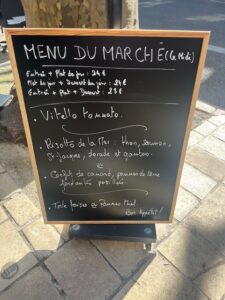 MENU DU MARCHÉ (le Midi)
Entrée + Plat du jour : 24 €
Plat du jour + Dessert du jour : 24 €
Entrée + Plat + Dessert : 28 €
. Vitello tonnato.
. Risotto de la Mer : thon, saumon,
St Jacques, dorade et gambas.
. Confit de canard, pommes de terre
fondantes persillées.
. Tarte
Bon Appétit !